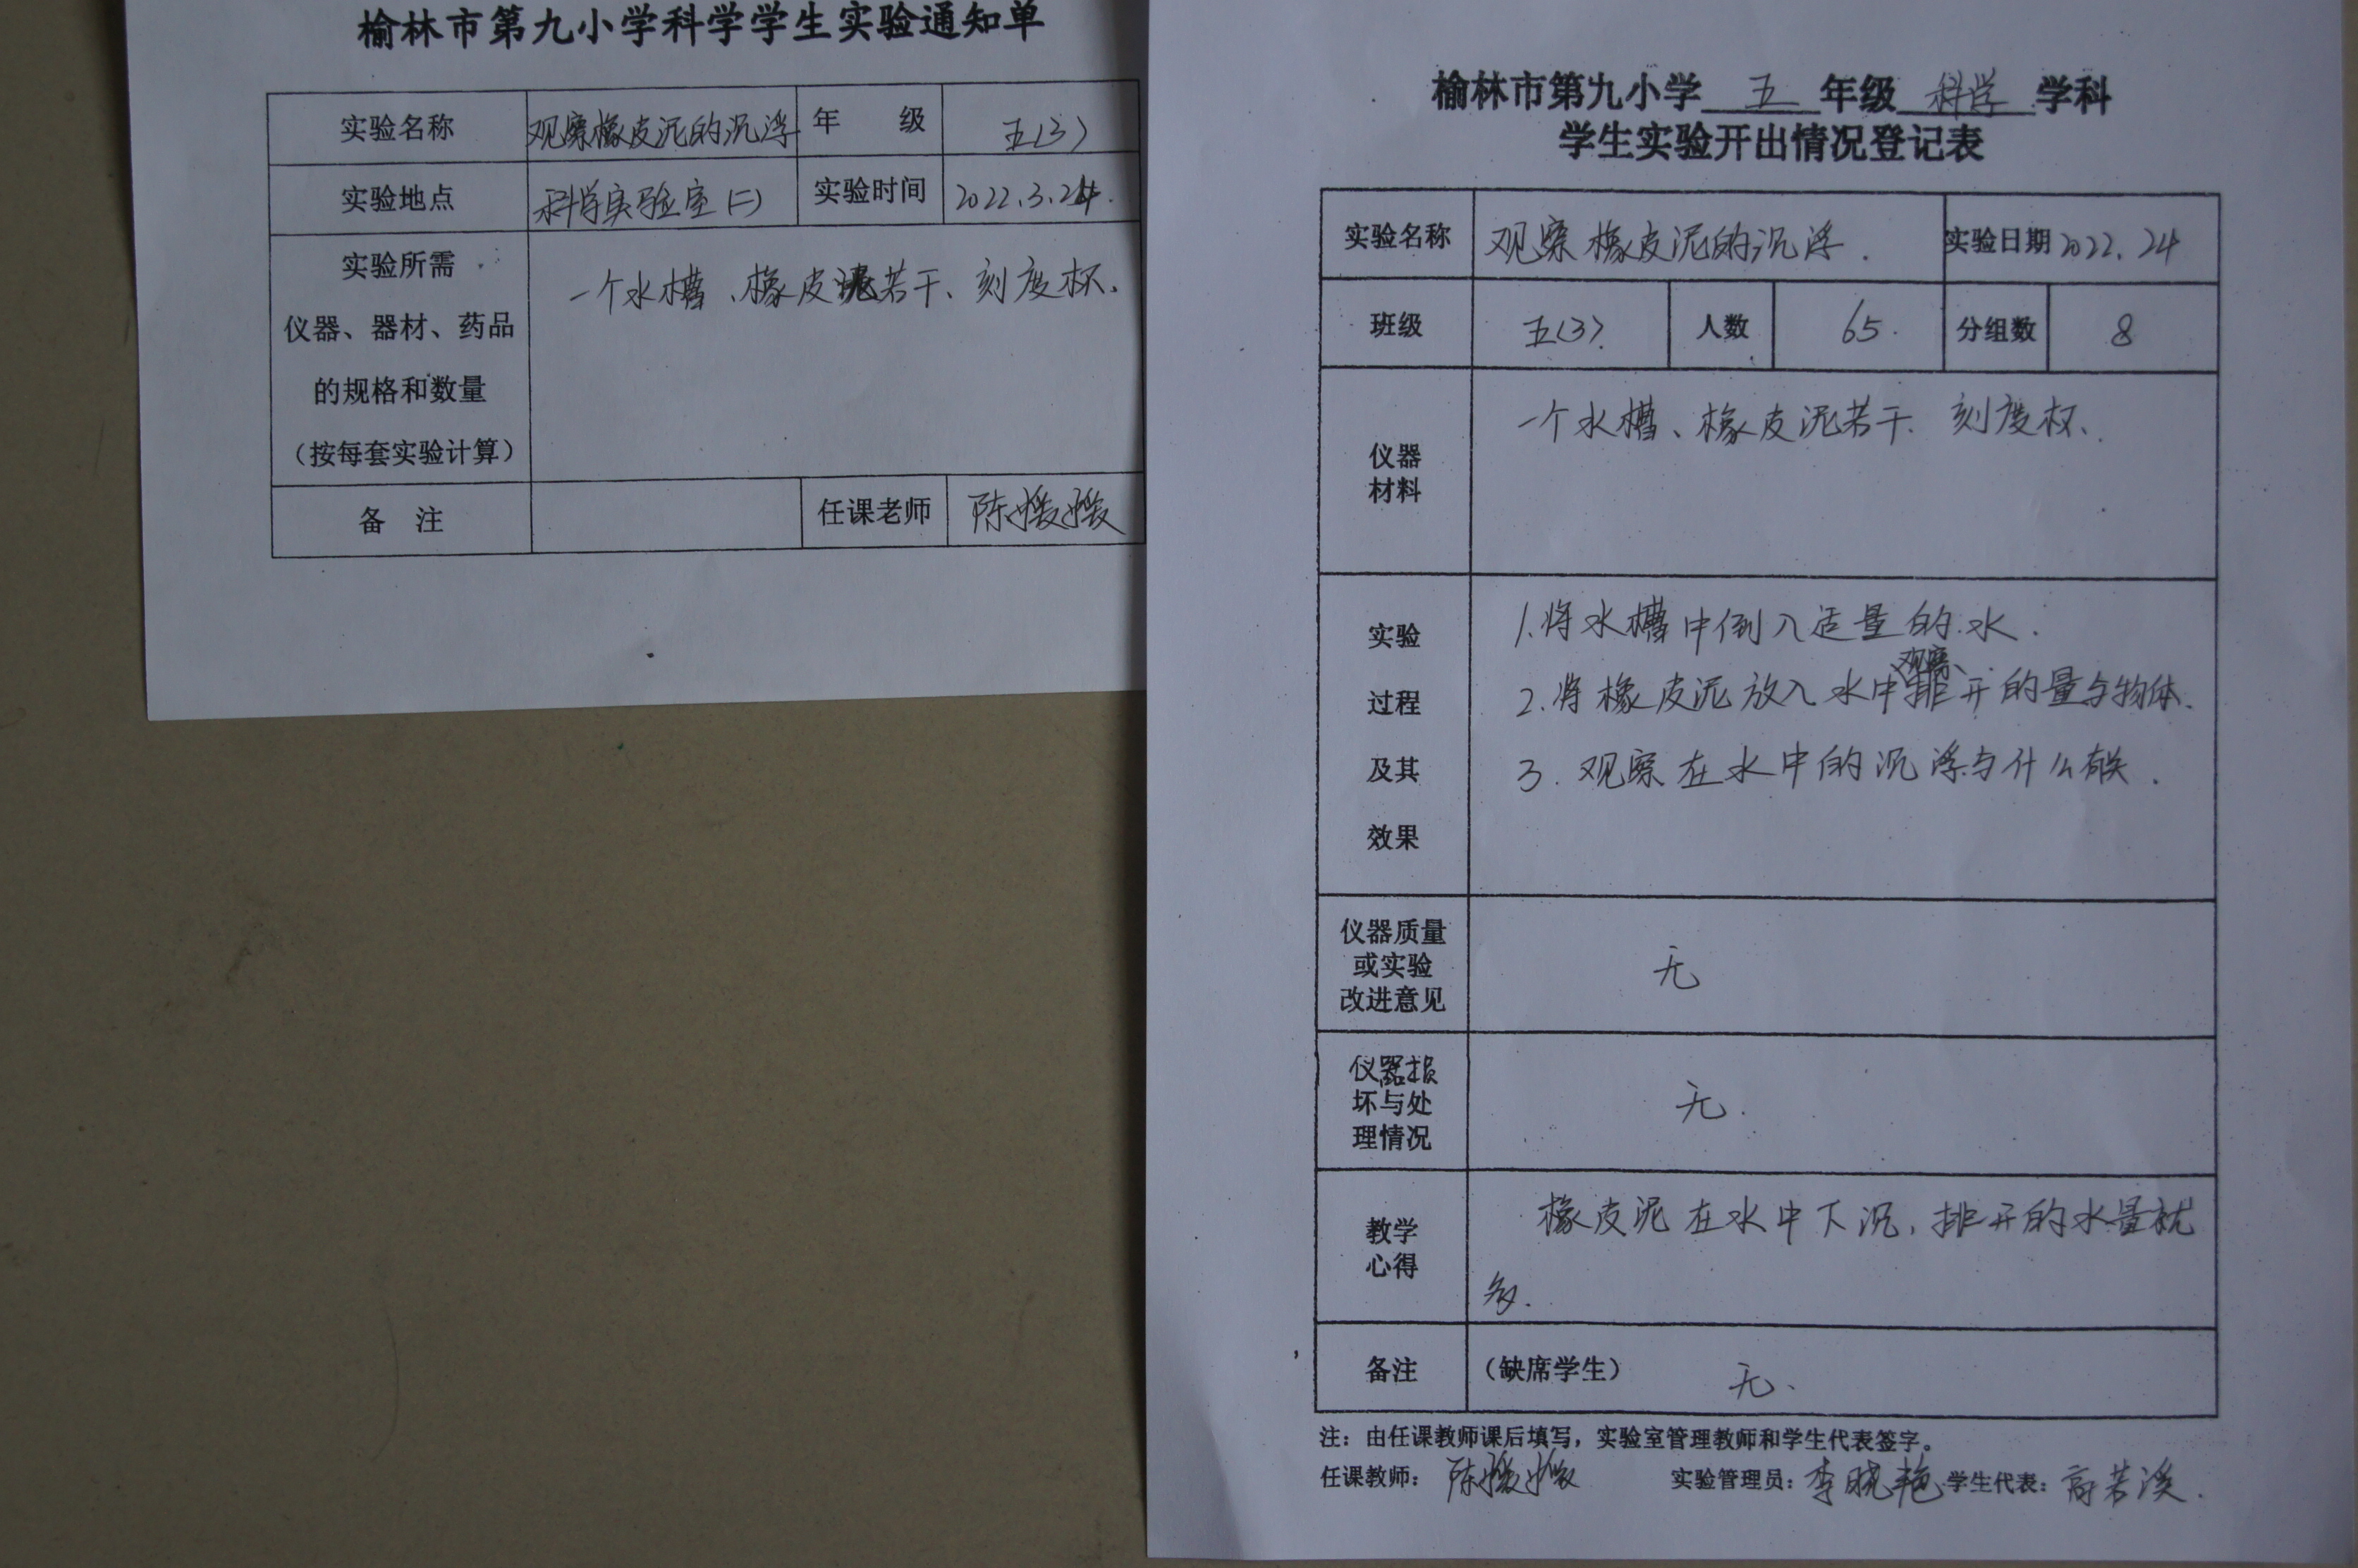 榆林市第九小学科学学生实验通知单
实验名称 观察橡皮泥的沉浮 年 级 五(3)
实验地点 科学实验室(二) 实验时间 2022.3.24.
实验所需
仪器、器材、药品
的规格和数量
（按每套实验计算）
一个水槽、橡皮泥若干、刻度杯.
备 注 任课老师 陈媛媛
榆林市第九小学 五 年级 科学 学科
学生实验开出情况登记表
实验名称 观察橡皮泥的沉浮. 实验日期 2022.24
班级 五(3). 人数 65. 分组数 8
仪器
材料
一个水槽、橡皮泥若干、刻度杯、.
实验
过程
及其
效果
1.将水槽中倒入适量的水.
2.将橡皮泥放入水中观察排开的量与物体.
3.观察在水中的沉浮与什么有关.
仪器质量
或实验
改进意见
无
仪器损
坏与处
理情况
无.
教学
心得
橡皮泥在水中下沉,排开的水量就
多.
备注 （缺席学生） 无.
注：由任课教师课后填写，实验室管理教师和学生代表签字。
任课教师： 陈媛媛 实验管理员：李晓艳 学生代表：高若溪.